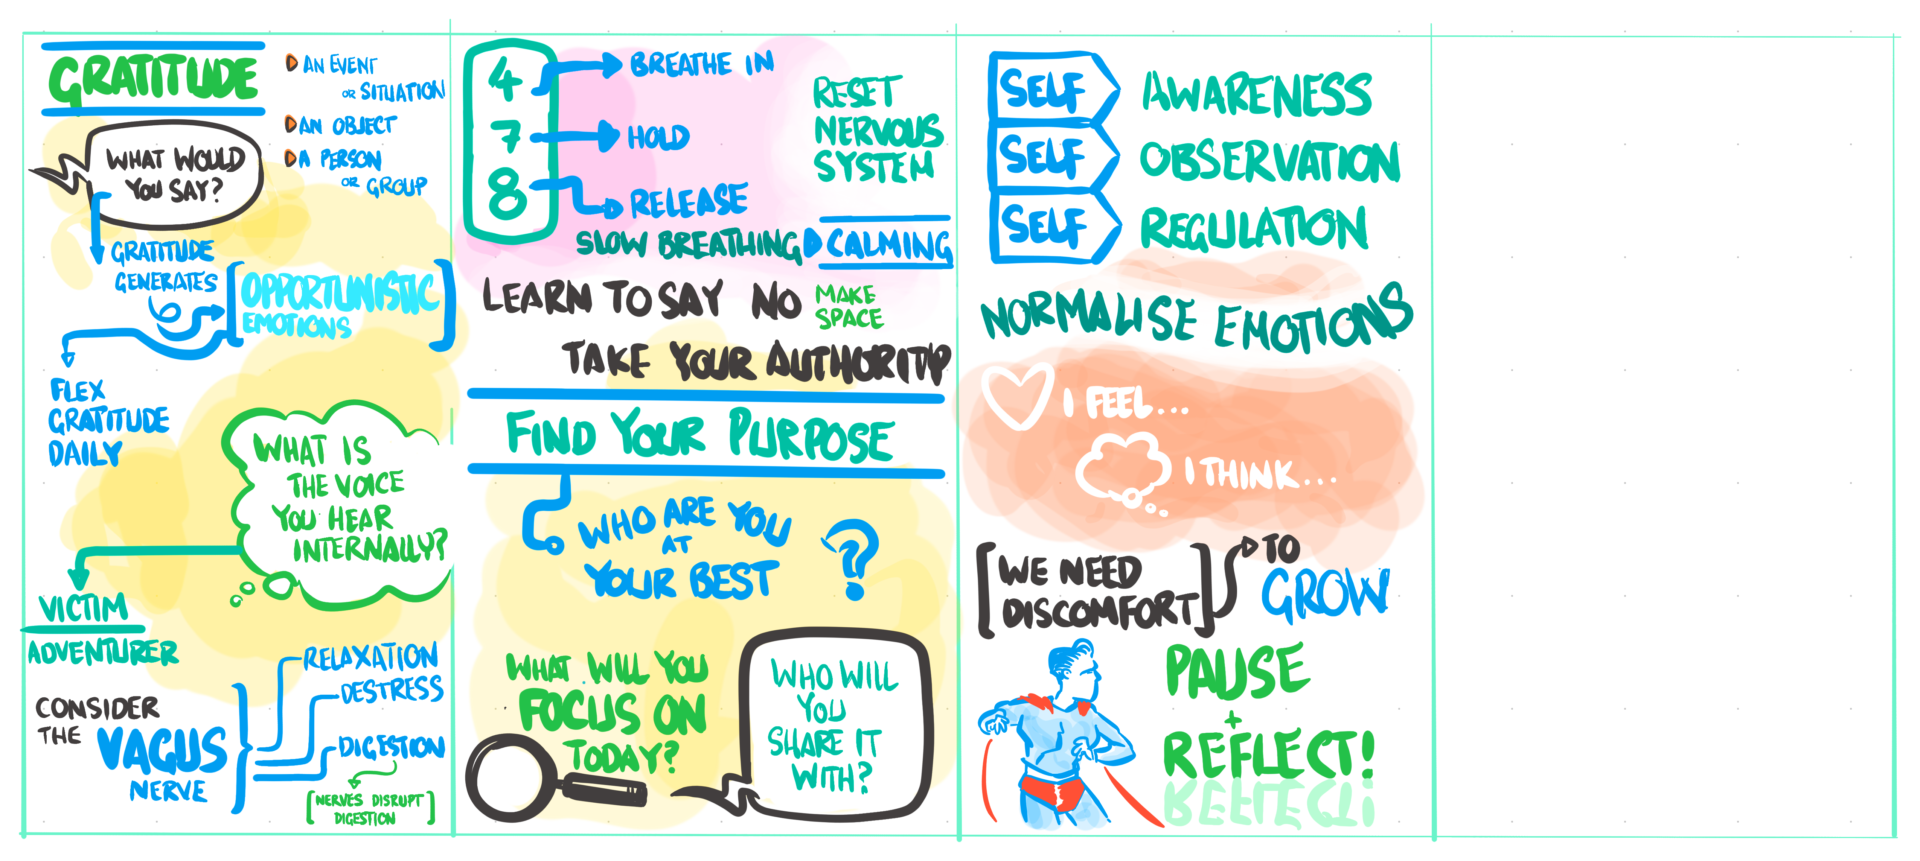 GRATITUDE
AN EVENT
OR SITUATION
AN OBJECT
A PERSON
OR GROUP
WHAT WOULD
YOU SAY?
GRATITUDE
GENERATES
OPPORTUNISTIC
EMOTIONS
FLEX
GRATITUDE
DAILY
WHAT IS
THE VOICE
YOU HEAR
INTERNALLY?
VICTIM
ADVENTURER
CONSIDER
THE VAGUS
NERVE
RELAXATION
DESTRESS
DIGESTION
[NERVES DISRUPT
DIGESTION]
4 BREATHE IN
7 HOLD
8 RELEASE
RESET
NERVOUS
SYSTEM
SLOW BREATHING CALMING
LEARN TO SAY NO
MAKE
SPACE
TAKE YOUR AUTHORITY
FIND YOUR PURPOSE
WHO ARE YOU
AT
YOUR BEST
?
WHAT WILL YOU
FOCUS ON
TODAY?
WHO WILL
YOU
SHARE IT
WITH?
SELF AWARENESS
SELF OBSERVATION
SELF REGULATION
NORMALISE EMOTIONS
I FEEL...
I THINK...
[WE NEED
DISCOMFORT]
TO
GROW
PAUSE
+
REFLECT!